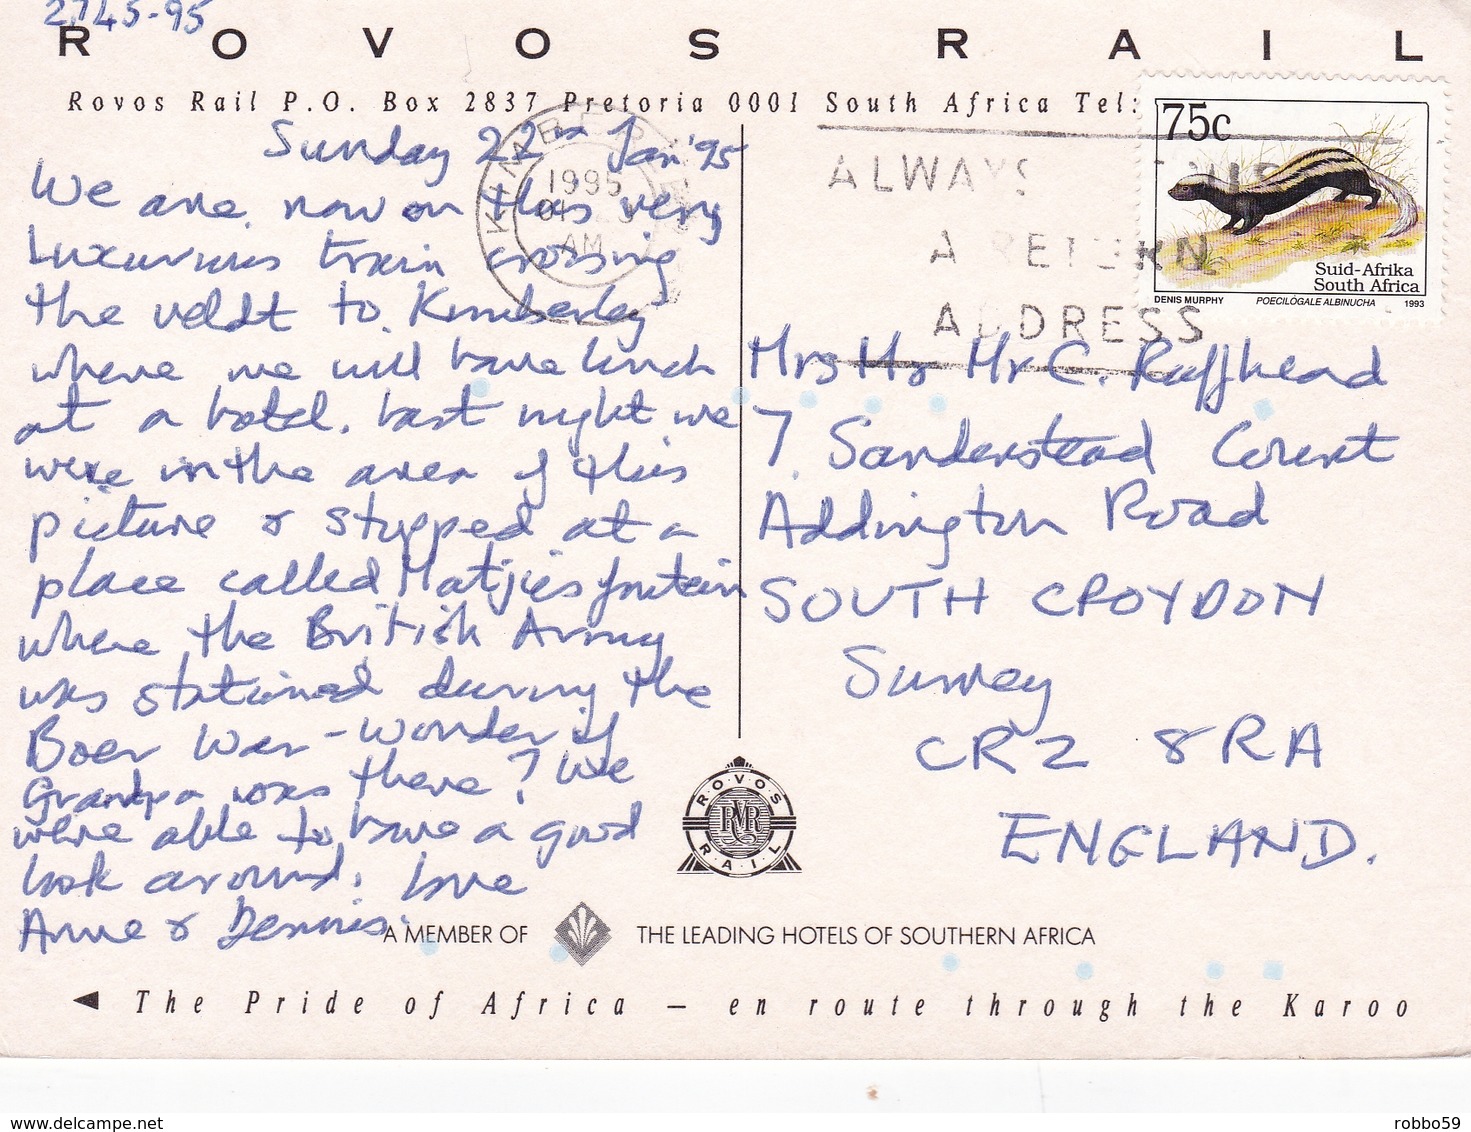 2,145-95
ROVOS RAIL
Rovos Rail P.O. Box 2837 Pretoria 0001 South Africa Tel:
75c
Suid-Afrika
South Africa
DENIS MURPHY POECILOGALE ALBINUCHA 1993
KIMBERLEY
1995
01
AM
ALWAYS
A RETURN
ADDRESS
Sunday 22nd Jan '95
We are now on this very
Luxurious train crossing
the veldt to Kimberley
where we will have lunch
at a hotel. Last night we
were in the area of this
picture & stopped at a
place called Matjiesfontein
where the British Army
was stationed during the
Boer War - wonder if
Grandpa was there? We
were able to have a good
look around. Love
Anne & Dennis.
Mrs H & Mr C. Ruffhead
7 Sanderstead Court
Addington Road
SOUTH CROYDON
Surrey
CR2 8RA
ENGLAND.
ROVOS
RVR
RAIL
A MEMBER OF THE LEADING HOTELS OF SOUTHERN AFRICA
The Pride of Africa – en route through the Karoo
www.delcampe.net
robbo59